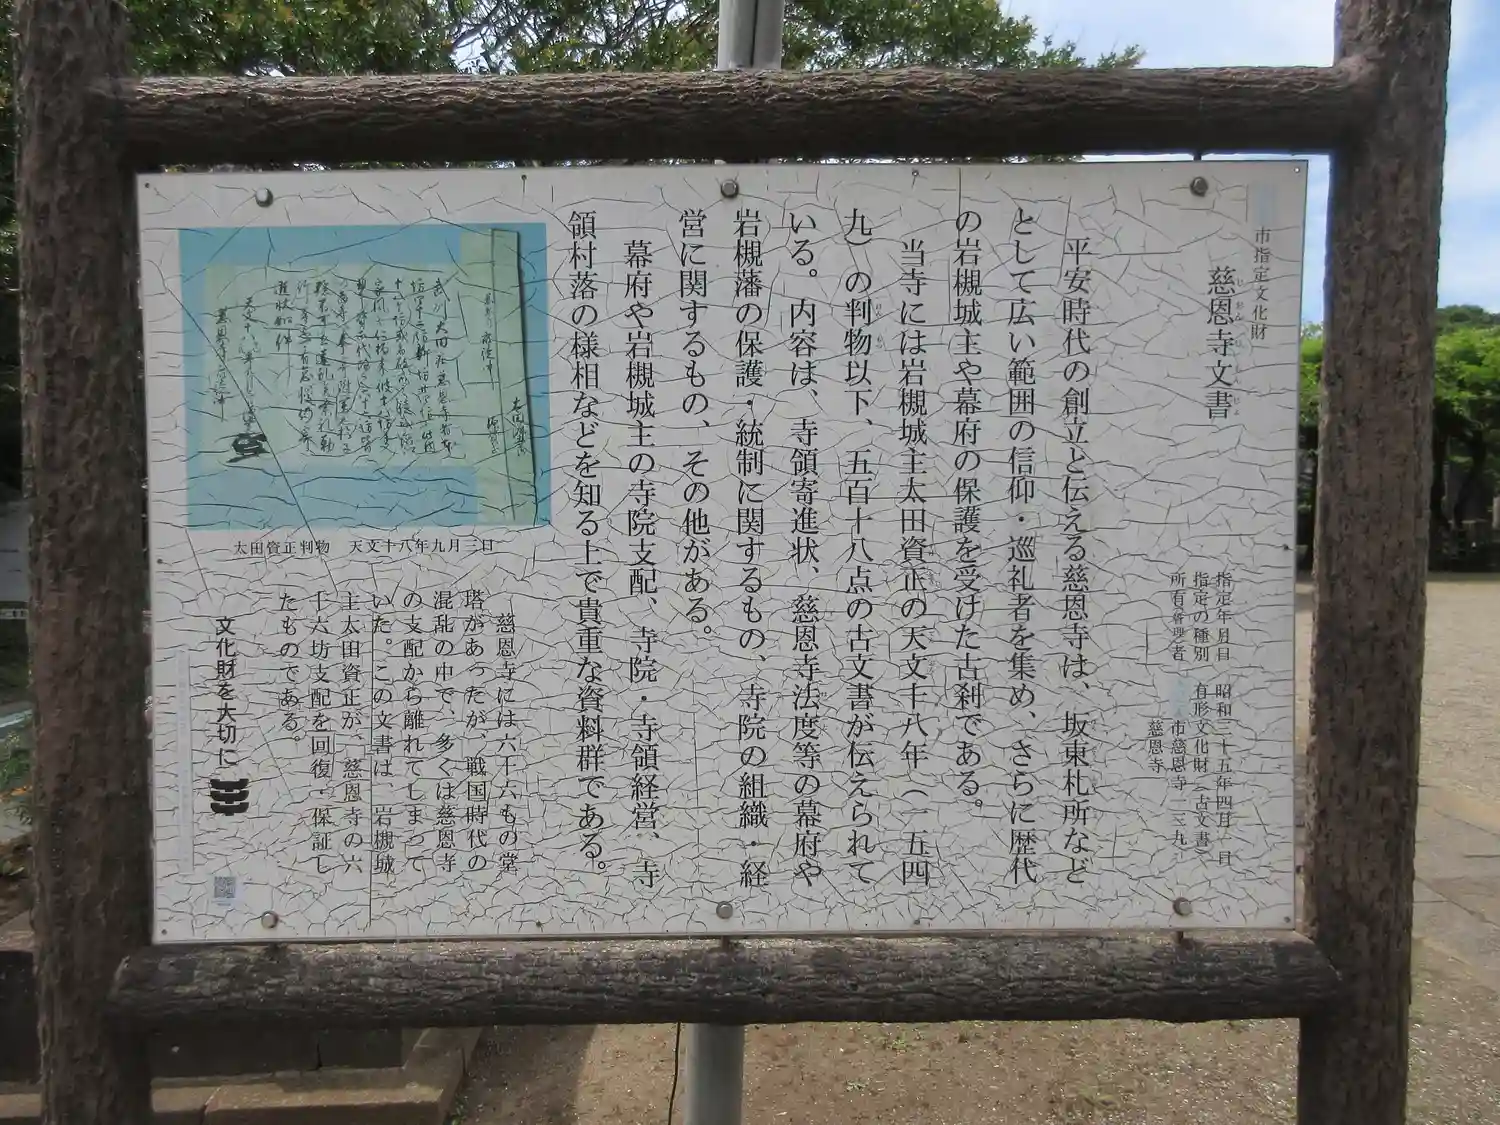 市指定文化財
慈恩寺文書
指定年月日 昭和三十五年四月一日
指定の種別 有形文化財（古文書）
所有管理者 市慈恩寺一三九
慈恩寺
平安時代の創立と伝える慈恩寺は、坂東札所など
として広い範囲の信仰・巡礼者を集め、さらに歴代
の岩槻城主や幕府の保護を受けた古刹である。
当寺には岩槻城主太田資正の天文十八年（一五四
九）の判物以下、五百十八点の古文書が伝えられて
いる。内容は、寺領寄進状、慈恩寺法度等の幕府や
岩槻藩の保護・統制に関するもの、寺院の組織・経
営に関するもの、その他がある。
幕府や岩槻城主の寺院支配、寺院・寺領経営、寺
領村落の様相などを知る上で貴重な資料群である。
太田資正判物 天文十八年九月三日
慈恩寺には六十六もの堂
塔があったが、戦国時代の
混乱の中で、多くは慈恩寺
の支配から離れてしまって
いた。この文書は、岩槻城
主太田資正が、慈恩寺の六
十六坊支配を回復・保証し
たものである。
文化財を大切に